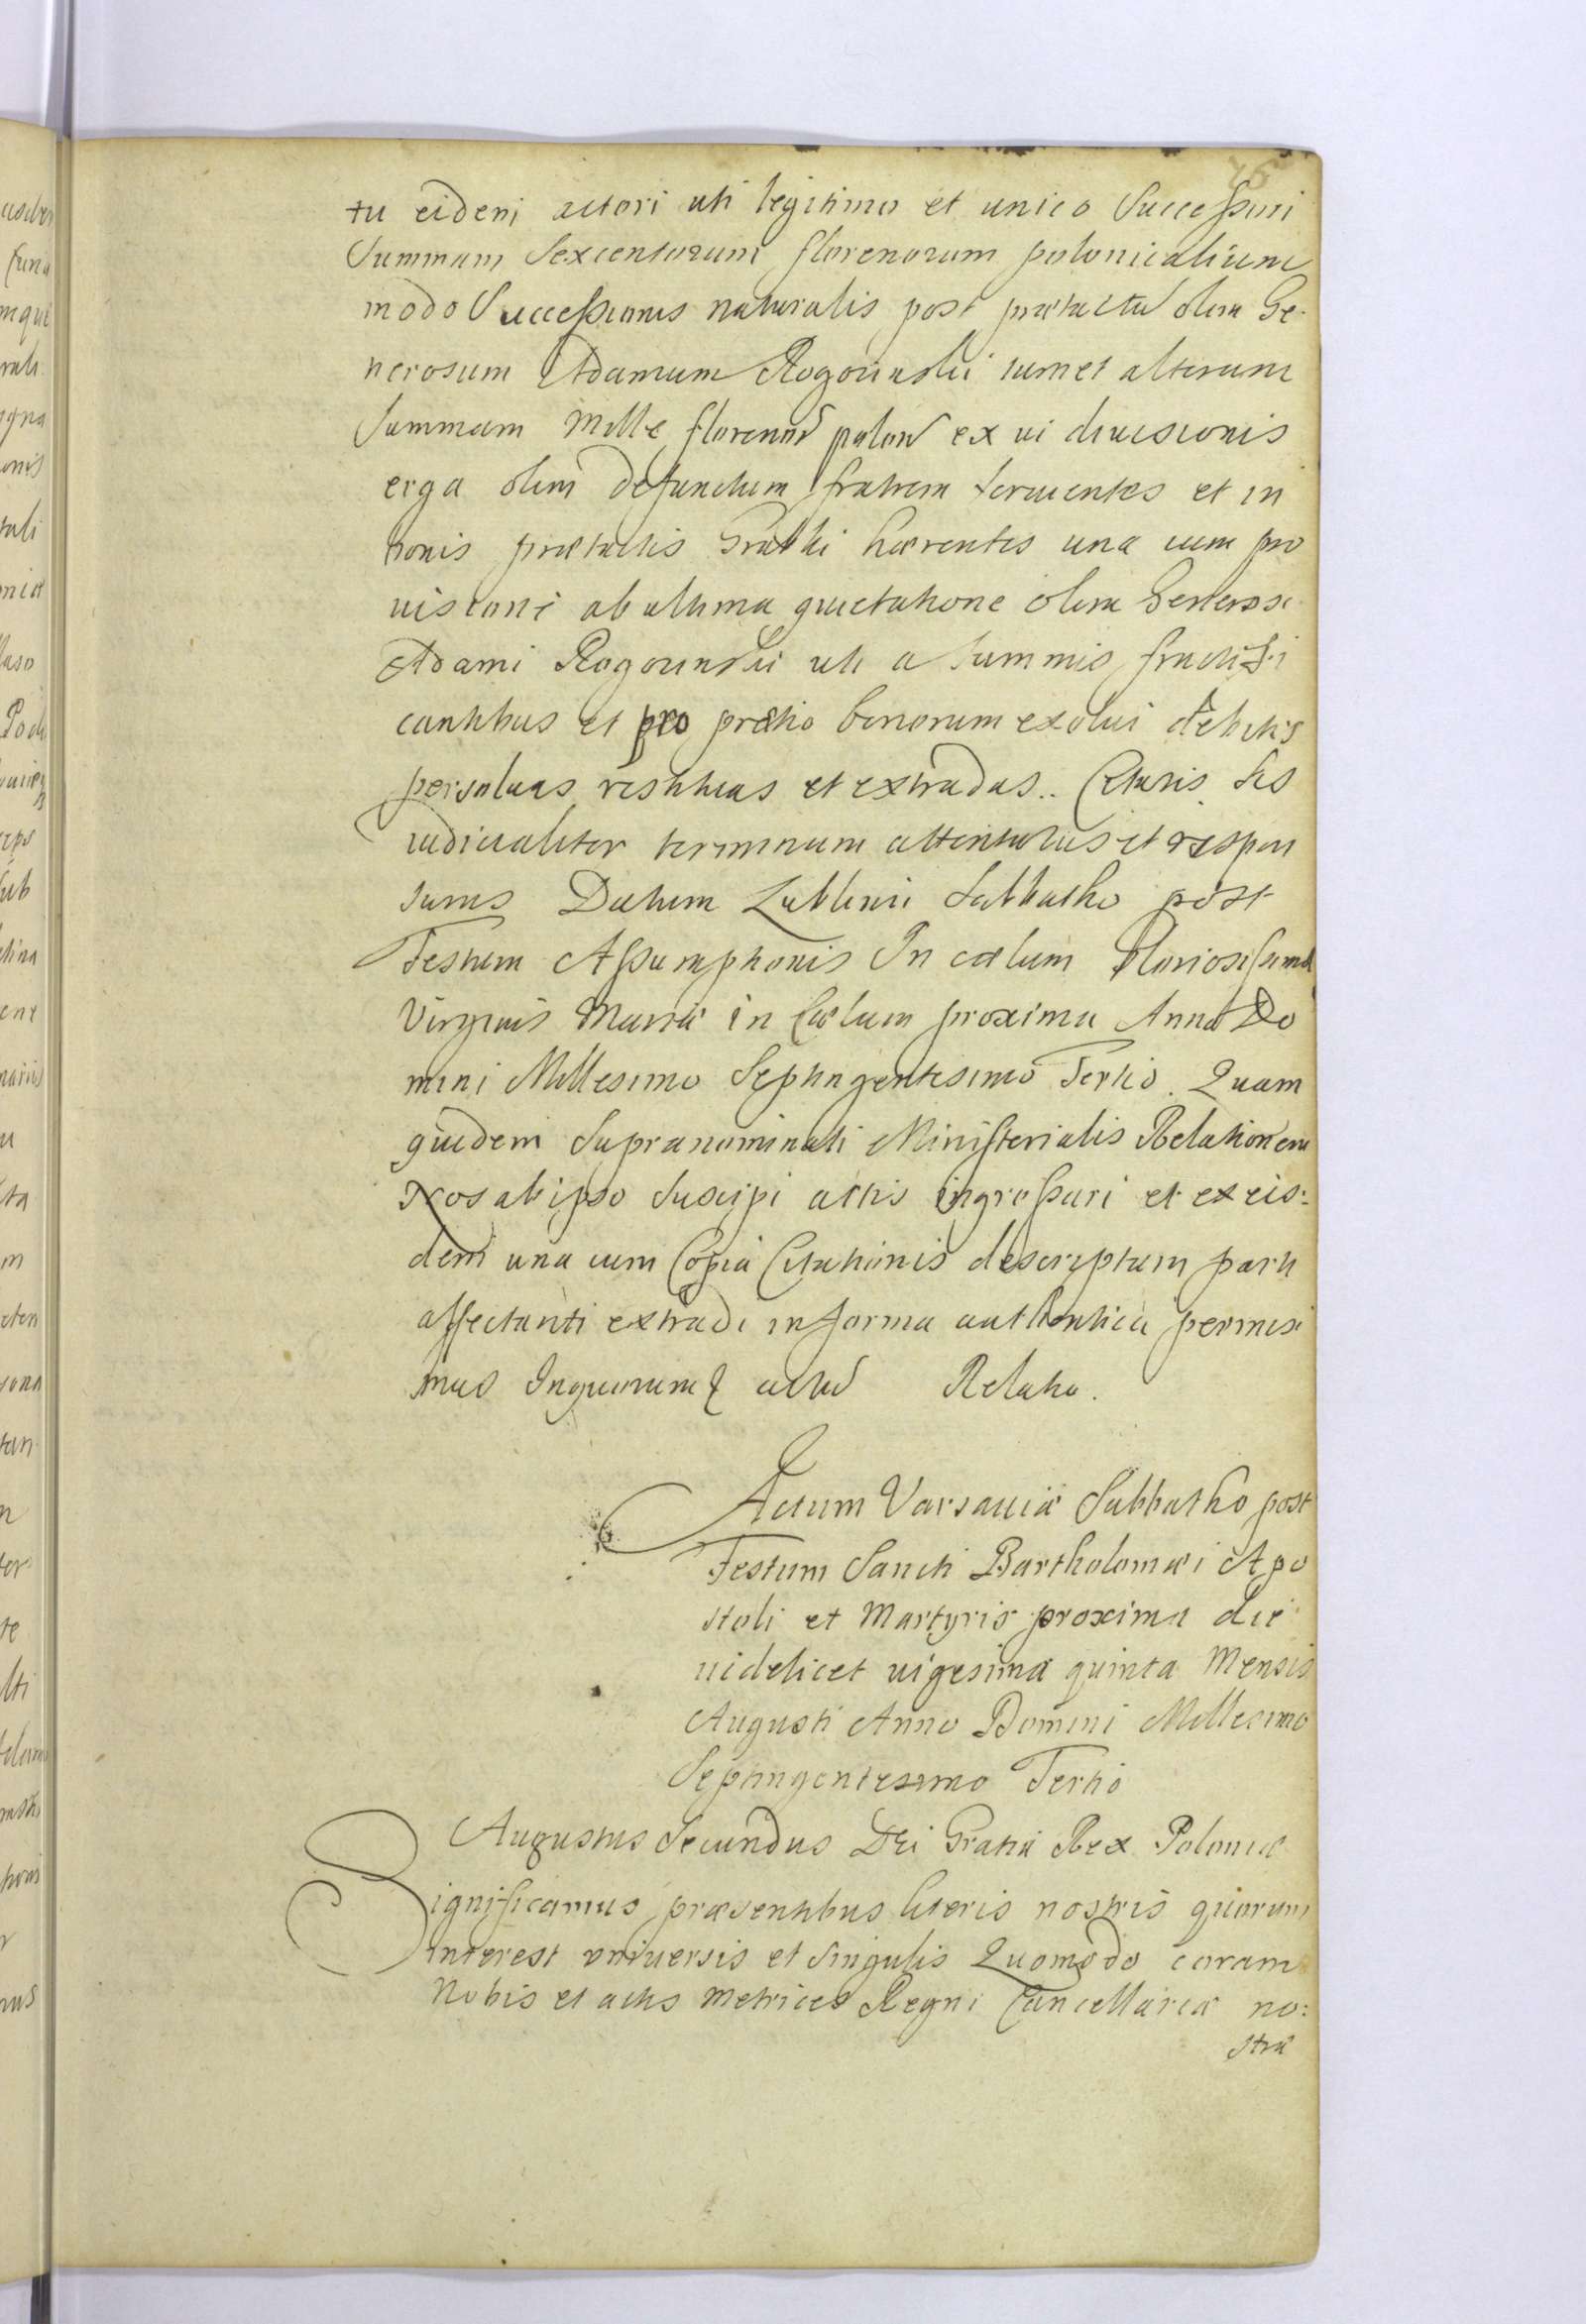 tu eidem actori uti legitimo et unico Successori
Summam Sexcentorum florenorum polonicalium
modo Successionis naturalis post prætactũ olim Ge-
nerosum Adamum Rogowski tum et alteram
Summam Mille florenoř polonˀ ex ui diuisionis
erga olim defunctum fratrem seruientes et in
bonis prætactis hærentes una cum pro
uisione ab ultima quietatione olim Generosi
Adami Rogowski uti a Summis fructifi
cantibus et pro prætio bonorum exolui debitis
persoluas restituas et extradas.. Citaris sis
iudicialiter terminum attentaturus et respon
surus Datum Lublini Sabbatho post
Festum Assumptionis In cælum Gloriosissimæ
Virginis Mariæ in Cælum proximo Anno Do
mini Millesimo Septingentesimo Tertio. Quam
quidem Supranominati Ministerialis Relationem
Nos ab ipso Suscipi actis ingrossari et ex eis:
dem una cum Copia Citationis descriptam parti
affectanti extradi in forma authentica permisi
mus Inquorum actũ Relatio.
Actum Varsauiæ Sabbatho post
Festum Sancti Bartholomæi Apo
stoli et Martyris proximo die
uidelicet uigesima quinta Mensis
Augusti Anno Domini Millesimo
Septingentesimo Tertio
Augustus Secundus Dei Gratia Rex Poloniæ
Significamus præsentibus literis nostris quorum
interest vniuersis et singulis Quomodo coram
Nobis et actis Metrices Regni Cancellariæ no:
stræ